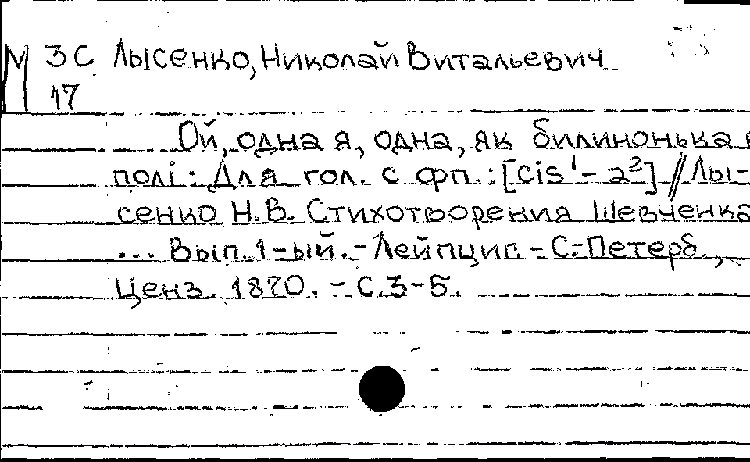 М 3 С Лысенко, Николай Витальевич
17
Ой, одна я, одна, як билинонька в
полі : Для гол. с фп. : [cis¹ - a²] // Лы-
сенко Н.В. Стихотворения Шевченка
... Вып. 1-ый. - Лейпциг. - С.-Петерб.,
Ценз. 1870. - С. 3-5.